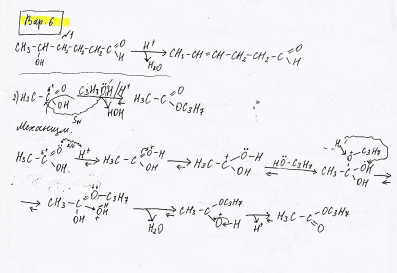 Вар. 6
№1
CH₃-CH-CH₂-CH₂-CH₂-C=O H⁺ → CH₃-CH=CH-CH₂-CH₂-C=O
OH H H₂O H
2) H₃C-C=O OH C₃H₇ÖH/H⁺ ⇄ H₃C-C=O OC₃H₇
Sɴ HOH
Механизм.
H₃C-C=O OH H⁺ ⇄ H₃C-C=O-H OH ⇄ H₃C-C-Ö-H OH HÖ-C₃H₇ ⇄ CH₃-C-ÖH OH H O-C₃H₇
⇄ CH₃-C-O-C₃H₇ OH OH H → H₂O CH₃-C-OC₃H₇ O-H ⇄ H⁺ H₃C-C-OC₃H₇ O